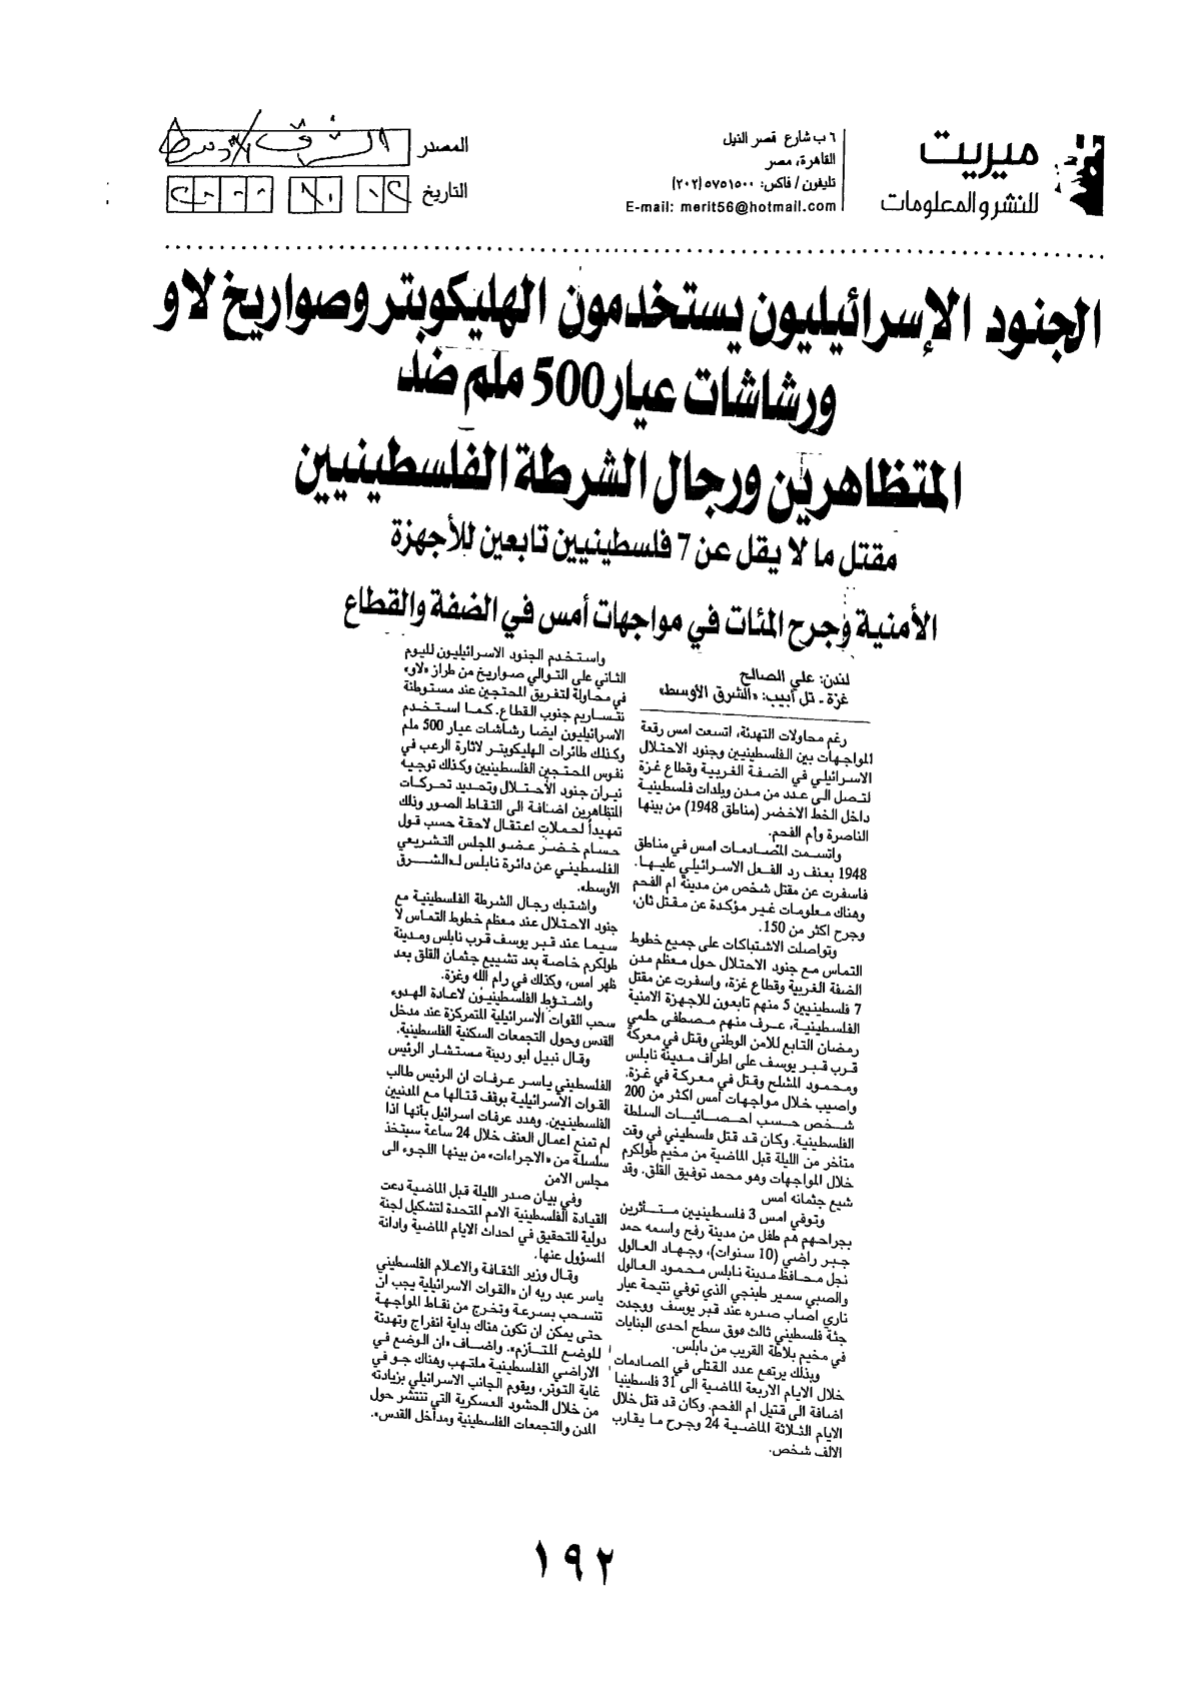 ميريت
للنشر والمعلومات
٦ ب شارع قصر النيل
القاهرة، مصر
تليفون / فاكس: ٥٧٥١٥٠٠ (٢٠٢)
E-mail: merit56@hotmail.com
المصدر الشرق الأوسط
التاريخ
الجنود الإسرائيليون يستخدمون الهليكوبتر وصواريخ لاو
ورشاشات عيار 500 ملم ضد
المتظاهرين ورجال الشرطة الفلسطينيين
مقتل ما لا يقل عن 7 فلسطينيين تابعين للأجهزة
الأمنية وجرح المئات في مواجهات أمس في الضفة والقطاع
لندن: علي الصالح
غزة ـ تل أبيب: «الشرق الأوسط»
رغم محاولات التهدئة، اتسعت امس رقعة
المواجهات بين الفلسطينيين وجنود الاحتلال
الاسرائيلي في الضفة الغربية وقطاع غزة
لتصل الى عدد من مدن وبلدات فلسطينية
داخل الخط الاخضر (مناطق 1948) من بينها
الناصرة وأم الفحم.
واتسمت المصادمات امس في مناطق
1948 بعنف رد الفعل الاسرائيلي عليها.
فاسفرت عن مقتل شخص من مدينة ام الفحم
وهناك معلومات غير مؤكدة عن مقتل ثان،
وجرح اكثر من 150.
وتواصلت الاشتباكات على جميع خطوط
التماس مع جنود الاحتلال حول معظم مدن
الضفة الغربية وقطاع غزة، واسفرت عن مقتل
7 فلسطينيين 5 منهم تابعون للاجهزة الامنية
الفلسطينية، عرف منهم مصطفى حلمي
رمضان التابع للامن الوطني وقتل في معركة
قرب قبر يوسف على اطراف مدينة نابلس
ومحمود المشلح وقتل في معركة في غزة.
واصيب خلال مواجهات امس اكثر من 200
شخص حسب احصائيات السلطة
الفلسطينية. وكان قد قتل فلسطيني في وقت
متأخر من الليلة قبل الماضية من مخيم طولكرم
خلال المواجهات وهو محمد توفيق القلق. وقد
شيع جثمانه امس
وتوفي امس 3 فلسطينيين متأثرين
بجراحهم هم طفل من مدينة رفح واسمه حمد
جبر راضي (10 سنوات)، وجهاد العالول
نجل محافظ مدينة نابلس محمود العالول
والصبي سمير طبنجي الذي توفي نتيجة عيار
ناري اصاب صدره عند قبر يوسف ووجدت
جثة فلسطيني ثالث فوق سطح احدى البنايات
في مخيم بلاطة القريب من نابلس.
وبذلك يرتفع عدد القتلى في المصادمات
خلال الايام الاربعة الماضية الى 31 فلسطينيا
اضافة الى قتيل ام الفحم. وكان قد قتل خلال
الايام الثلاثة الماضية 24 وجرح ما يقارب
الالف شخص.
واستخدم الجنود الاسرائيليون لليوم
الثاني على التوالي صواريخ من طراز «لاو»
في محاولة لتفريق المحتجين عند مستوطنة
نتساريم جنوب القطاع. كما استخدم
الاسرائيليون ايضا رشاشات عيار 500 ملم
وكذلك طائرات الهليكوبتر لاثارة الرعب في
نفوس المحتجين الفلسطينيين وكذلك توجيه
نيران جنود الاحتلال وتحديد تحركات
المتظاهرين اضافة الى التقاط الصور وذلك
تمهيداً لحملات اعتقال لاحقة حسب قول
حسام خضر عضو المجلس التشريعي
الفلسطيني عن دائرة نابلس لـ«الشرق
الأوسط».
واشتبك رجال الشرطة الفلسطينية مع
جنود الاحتلال عند معظم خطوط التماس لا
سيما عند قبر يوسف قرب نابلس ومدينة
طولكرم خاصة بعد تشييع جثمان القلق بعد
ظهر امس، وكذلك في رام الله وغزة.
واشترط الفلسطينيون لاعادة الهدوء
سحب القوات الاسرائيلية المتمركزة عند مدخل
القدس وحول التجمعات السكنية الفلسطينية.
وقال نبيل ابو ردينة مستشار الرئيس
الفلسطيني ياسر عرفات ان الرئيس طالب
القوات الاسرائيلية بوقف قتالها مع المدنيين
الفلسطينيين. وهدد عرفات اسرائيل بأنها اذا
لم تمنع اعمال العنف خلال 24 ساعة سيتخذ
سلسلة من «الاجراءات» من بينها اللجوء الى
مجلس الامن
وفي بيان صدر الليلة قبل الماضية دعت
القيادة الفلسطينية الامم المتحدة لتشكيل لجنة
دولية للتحقيق في احداث الايام الماضية وادانة
المسؤول عنها.
وقال وزير الثقافة والاعلام الفلسطيني
ياسر عبد ربه ان «القوات الاسرائيلية يجب ان
تنسحب بسرعة وتخرج من نقاط المواجهة
حتى يمكن ان تكون هناك بداية انفراج وتهدئة
للوضع المتأزم». واضاف «ان الوضع في
الاراضي الفلسطينية ملتهب وهناك جو في
غاية التوتر، ويقوم الجانب الاسرائيلي بزيادته
من خلال الحشود العسكرية التي تنتشر حول
المدن والتجمعات الفلسطينية ومداخل القدس».
١٩٢